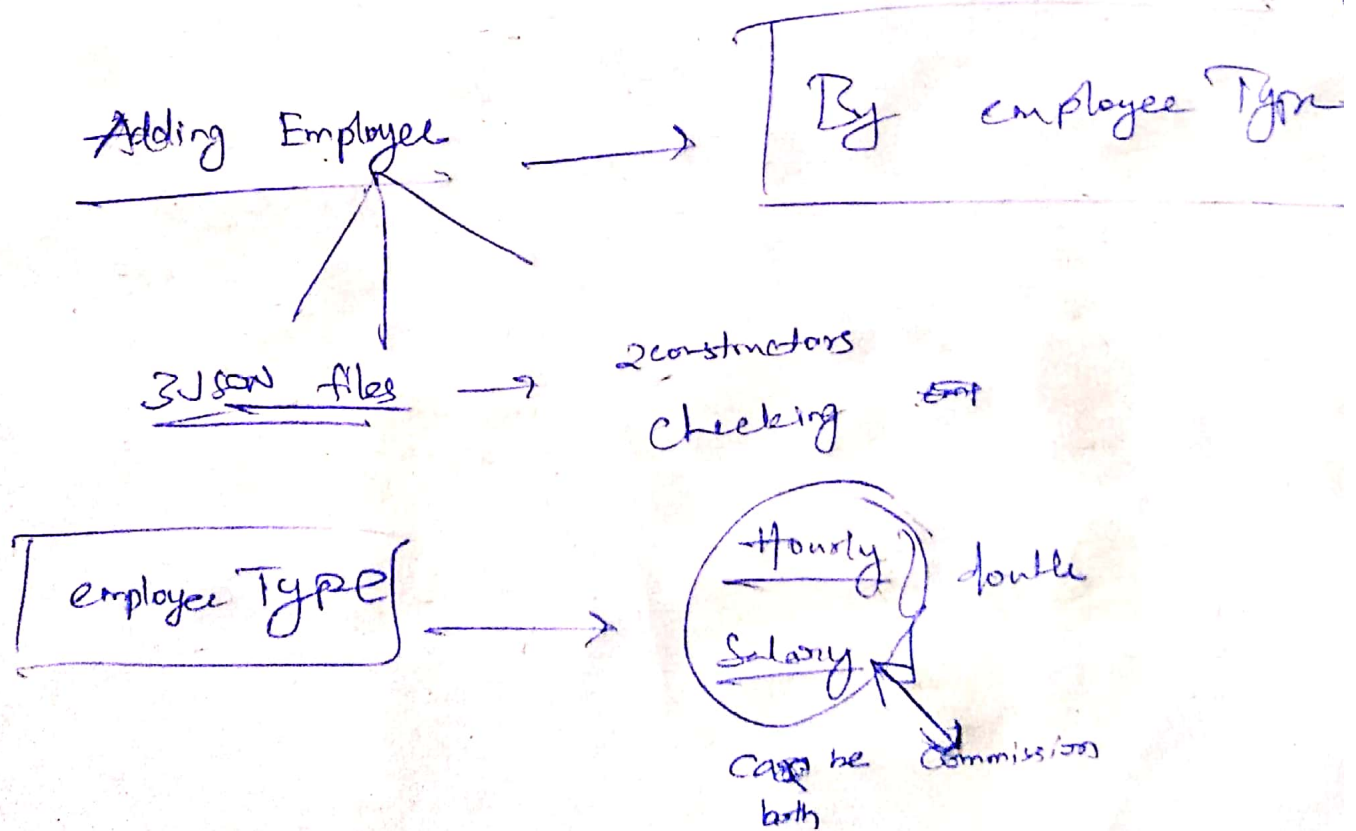 Adding Employee
By employee Type
3JSON files
2constructors
checking
employee Type
Hourly
double
Salary
be
Commission
both